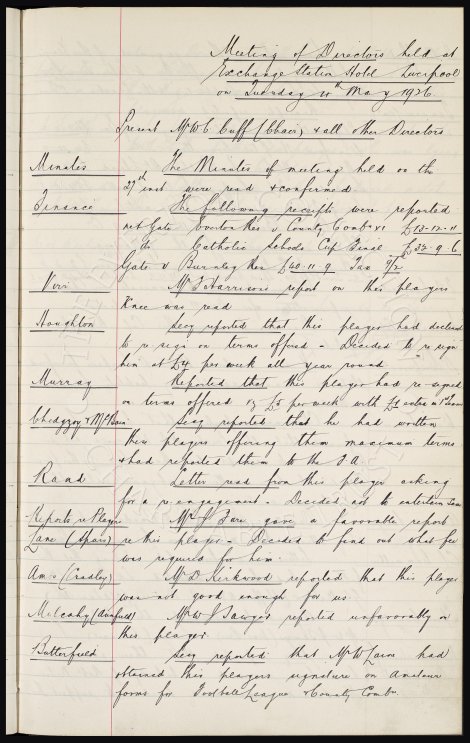 Meeting of Directors held at
Exchange Station Hotel Liverpool
on Tuesday 4th May 1926
Present Mr W C Cuff (Chair) & all other Directors
Minutes The Minutes of meeting held on the
27th inst were read & confirmed
Finance The following receipts were reported
net Gate Everton Res v County Comb XI £13-12-11
do Catholic Schools Cup Final £33-9-6
Gate v Burnley Res £40-11-9 Tax 9/2
Virr Mr J Harrison's report on this players
Knee was read
Houghton Secy reported that this player had declined
to re sign on terms offered - Decided to re sign
him at £4 per week all year round
Murray Reported that this player had re-signed
on terms offered £5 per week with £1 extra in 1st Team
Chedgzoy & McBain Secy reported that he had written
these players offering them maximum terms
& had reported them to the F.A.
Raad Letter read from this player asking
for a re-engagement - Decided not to entertain same
Reports re Player Mr J Fare gave a favorable report
Lane (Spain) re this player - Decided to find out what fee
was required for him
Amos (Cradley) Mr D Kirkwood reported that this player
was not good enough for us
Mulcahy (Anfield) Mr W J Sawyer reported unfavorably on
this player
Butterfield Secy reported that Mr W Laine had
obtained this players signature on Amateur
forms for Football League & County Comb